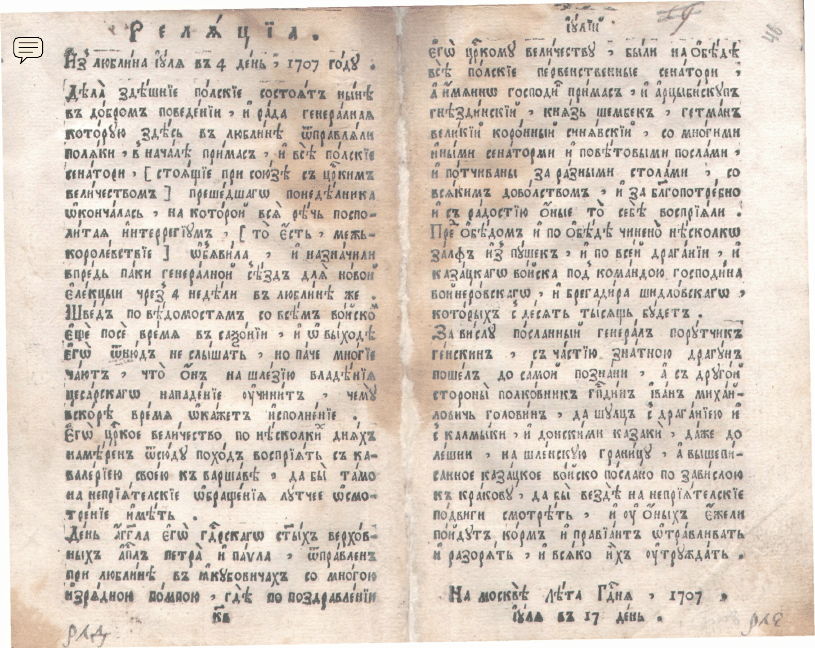 Реля́ція.
Из̾ люблина іуля въ 4 день, 1707 го́ду.
Дѣла̀ здѣ́шніе по́лскіе состоѧ́тъ ны́нѣ
въ добромъ поведе́ніи, и҆ ра́да генера́лная
кото́рую здѣсь въ люблинѣ ѿправля́ли
поля́ки, в̾ нача́лѣ примасъ, и҆ всѣ̀ по́лскіе
сена́тори, [ стоѧ́щіе при сою́зѣ съ цр҃кимъ
вели́чествомъ ] преше́дшагѡ понедѣ́лника
ѡ҆конча́лась, на кото́рой всѧ̀ рѣ́чь поспо-
ли́тая интеррегіумъ, [ то̀ є҆́сть, межъ-
королевствіе ] ѡ҆б̾яви́ла, и҆ назна́чили
впре́дь паки генера́лной с̾ѣздъ для̀ новой
є҆ле́кцыи чрез̾ 4 недѣ́ли въ люблинѣ же.
Шведъ по вѣ́домостямъ со всѣ́мъ во́йско
є҆щѐ посѐ вре́мя въ саѯо́ніи, и҆ ѡ҆ вы́ходѣ
є҆гѡ̀ ѿню́дъ не слы́шать, но па́че мно́гіе
ча́ютъ, что̀ ѻ҆́нъ на шле́зію владѣ́нія
цесарскагѡ нападе́ніе ᲂу҆чини́тъ, чему̀
вско́рѣ вре́мя ѡ҆ка́жетъ и҆сполне́ніе.
Є҆гѡ̀ цр҃кое вели́чество по нѣ́сколки дня́хъ
намѣ́ренъ ѿсю́ду похо́дъ воспрія́ть съ ка-
вале́ріею свое́ю къ варша́вѣ, да бы̀ та́мо
на непрія́телскіе ѡ҆браще́нія лу́тчее ѡ҆смо-
тре́ніе и҆мѣ́ть.
День а҆́гг҃ла є҆гѡ̀ гд҃рскагѡ ст҃ы́хъ верхо́в-
ныхъ а҆пл҃ъ петра̀ и҆ па́ѵла, ѿпра́вленъ
при люблинѣ въ ꙗ҆кубовичахъ со мно́гою
и҆зрѧ́дною по́мпою, гдѣ̀ по поздравле́ніи
к҃в
іу́лій
є҆гѡ̀ цр҃кому вели́честву, бы́ли на ѻ҆бѣ́дѣ
всѣ̀ по́лскіе первенственные сена́тори,
а҆ и҆́мяннѡ господи́нъ примасъ, и҆ арцыбискупъ
гнѣздинскій, кня́зь шембекъ, ге́тманъ
вели́кій коро́нный синя́вскій, со мно́гими
и҆ны́ми сена́торми и҆ повѣ́товыми посла́ми,
и҆ по́тчиваны за ра́зными стола́ми, со
вся́кимъ дово́лствомъ, и҆ за бл҃гопотре́бно
и҆ съ ра́достію ѻ҆́ные то̀ себѣ̀ воспрія́ли.
Пре́д̾ ѻ҆бѣ́домъ и҆ по ѻ҆бѣ́дѣ чинено̀ нѣ́сколкѡ
залфъ и҆з̾ пу́шекъ, и҆ по все́й драга́ніи, и҆
каза́цкагѡ во́йска под кома́ндою господи́на
войнеровскагѡ, и҆ брегади́ра шидловскагѡ,
кото́рыхъ с̾ де́сять ты́сящь бу́детъ.
За ви́слу по́сланный генера́лъ пору́тчикъ
генскинъ, съ ча́стію зна́тною драгу́нъ
поше́лъ до само́й позна́ни, а҆ съ друго́й
стороны̀ полко́вникъ гпⷭ҇динъ і҆ва́нъ миха́й-
ловичь голови́нъ, да шулцъ с̾ драга́ніею и҆
с̾ калмы́ки, и҆ донски́ми казакѝ, да́же до
лешни, на шле́нскую грани́цу, а҆ вышепи́-
санное каза́цкое во́йско по́слано по зави́слою
къ кра́кову, да бы̀ вездѣ̀ на непрія́телскіе
по́двиги смотрѣ́ть, и҆ ᲂу҆ ѻ҆́ныхъ є҆́жели
пойду́тъ, ко́рмъ и҆ правіа́нтъ ѡ҆травливать
и҆ разоря́ть, и҆ вся́ко и҆́хъ ᲂу҆тружда́ть.
На москвѣ̀ Лѣ́та Гдⷭ҇ня, 1707,
іу́ля въ 17 день.